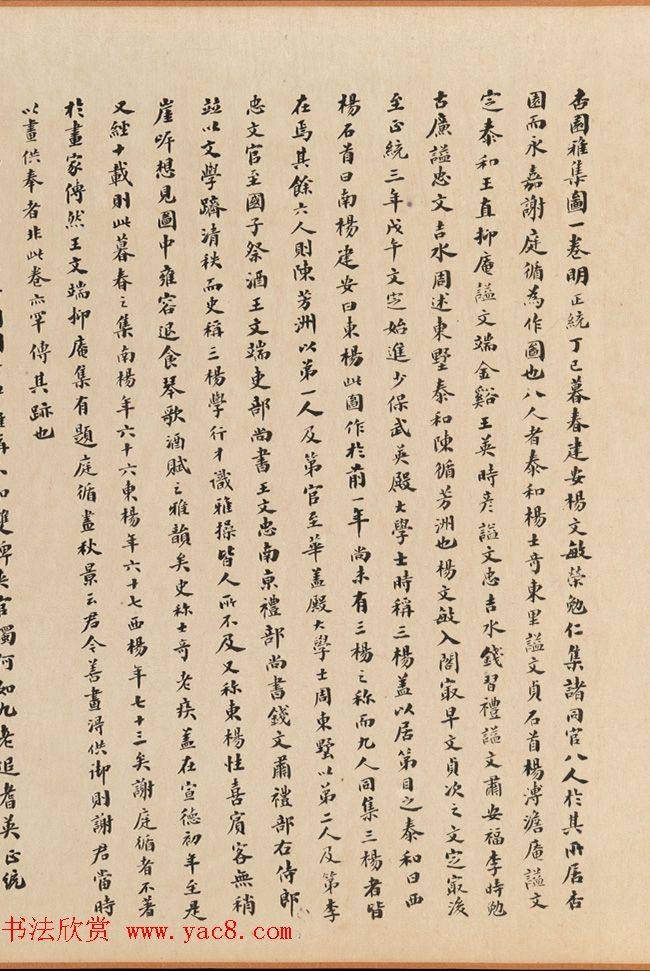 杏園雅集圖一卷明正統丁巳暮春建安楊文敏榮勉仁集諸同官八人於其所居杏
園而永嘉謝庭循為作圖也八人者泰和楊士奇東里謚文貞石首楊溥澹庵謚文
定泰和王直抑庵謚文端金谿王英時彥謚文忠吉水錢習禮謚文肅安福李時勉
古廉謚忠文吉水周述東墅泰和陳循芳洲也楊文敏入閣最早文貞次之文定最後
至正統三年戊午文定始進少保武英殿大學士時稱三楊蓋以居第目之泰和曰西
楊石首曰南楊建安曰東楊此圖作於前一年尚未有三楊之称而九人同集三楊者皆
在焉其餘六人則陳芳洲以第一人及第官至華蓋殿大學士周東墅以第二人及第李
忠文官至國子祭酒王文端吏部尚書王文忠南京禮部尚書錢文肅禮部右侍郎
並以文學躋清秩而史稱三楊學行才識雅操皆人所不及又称東楊性喜賓客無稍
崖岸想見圖中雍容退食琴歌酒賦之雅韻矣史称士奇老疾蓋在宣德初年至是
又經十載則此暮春之集南楊年六十六東楊年六十七西楊年七十三矣謝庭循者不著
於畫家傳然王文端抑庵集有題庭循畫秋景云君今善畫得供御則謝君當時
以畫供奉者非此卷亦罕傳其跡也
官獨何如九老追耆英正統
书法欣赏 www.yac8.com